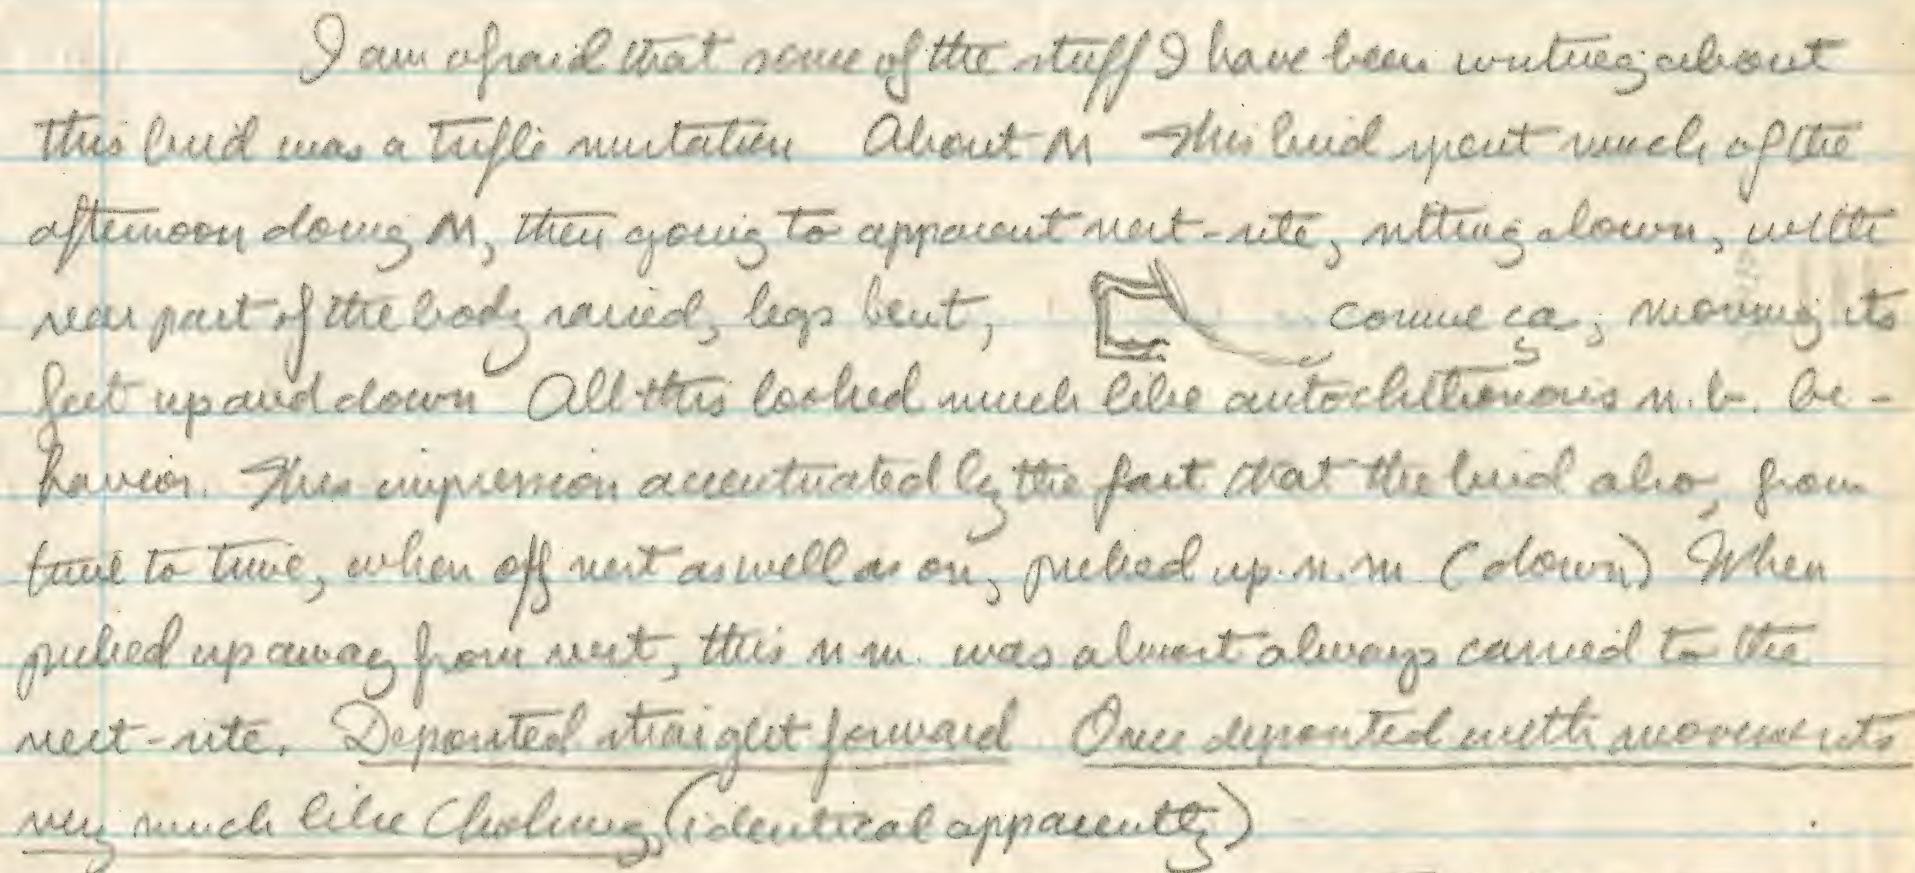 I am afraid that some of the stuff I have been writing about
this bird was a trifle mistaken About M This bird spent much of the
afternoon doing M, then going to apparent nest-site, sitting down, with
rear part of the body raised, legs bent, comme ça, moving its
feet up and down All this looked much like autochthonous n.b. be-
havior. This impression accentuated by the fact that the bird also, from
time to time, when off nest as well as on, picked up n.m. (down) When
picked up away from nest, this n.m. was almost always carried to the
nest-site. Deposited straight forward Once deposited with movements
very much like Choking, (identical apparently)